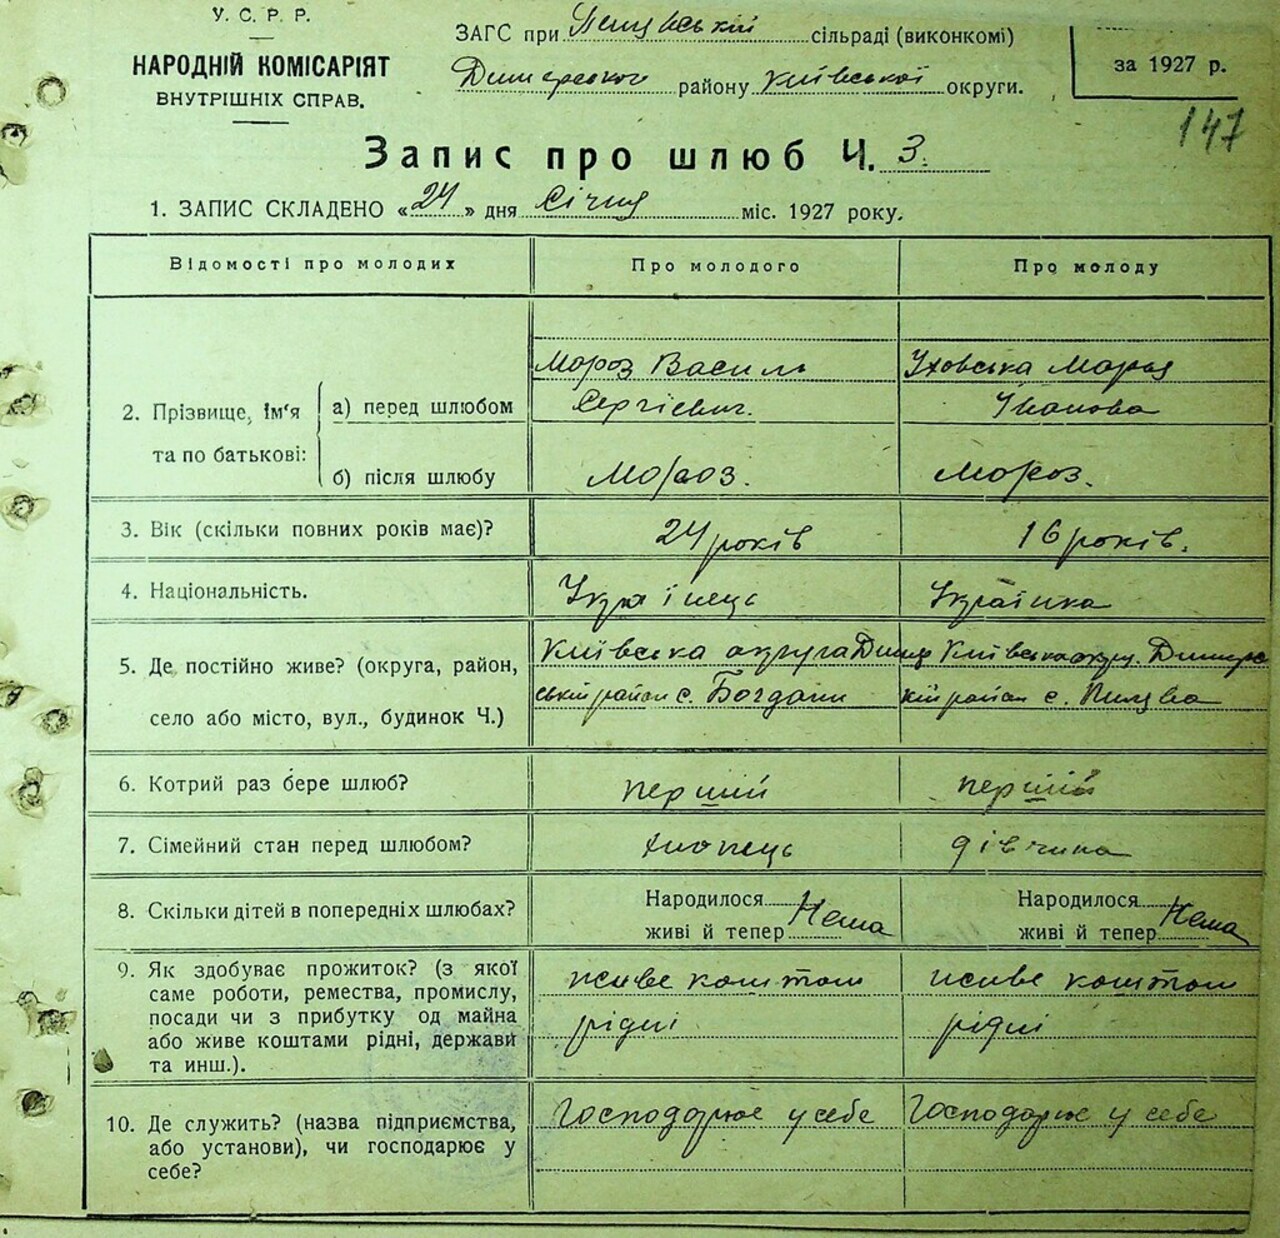 У. С. Р. Р.
НАРОДНІЙ КОМІСАРІЯТ
ВНУТРІШНІХ СПРАВ.
ЗАГС при сільраді (виконкомі)
Димерського району Київської округи.
за 1927 р.
147
Запис про шлюб Ч. 3.
1. ЗАПИС СКЛАДЕНО «24» дня Січня міс. 1927 року.
Відомості про молодих
Про молодого
Про молоду
2. Прізвище, Ім'я та по батькові:
а) перед шлюбом
Мороз Василь
Сергієвич.
Уховська Марья
Іванова
б) після шлюбу
Мороз.
Мороз.
3. Вік (скільки повних років має)?
24 років
16 років.
4. Національність.
Українець
Українка
5. Де постійно живе? (округа, район,
село або місто, вул., будинок Ч.)
Київська округа Димер
ській район с. Богдани
Київська окру. Димерсь
кій район с.
6. Котрий раз бере шлюб?
перший
перший
7. Сімейний стан перед шлюбом?
хлопець
дівчина
8. Скільки дітей в попередніх шлюбах?
Народилося
живі й тепер Нема
Народилося
живі й тепер Нема
9. Як здобуває прожиток? (з якої
саме роботи, ремества, промислу,
посади чи з прибутку од майна
або живе коштами рідні, держави
та инш.).
живе коштом
рідні
живе коштом
рідні
10. Де служить? (назва підприємства,
або установи), чи господарює у
себе?
Господарює у себе
Господарює у себе